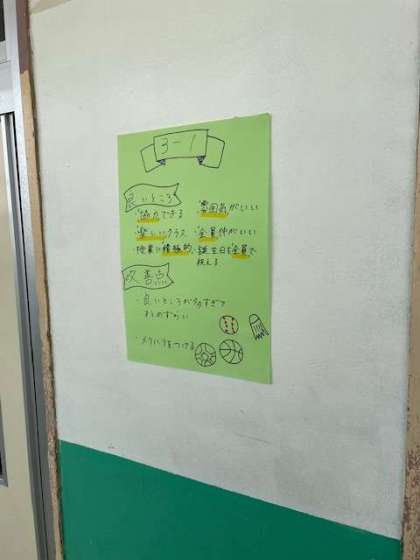 3-1
良いところ
・協力できる
・雰囲気がいい
・楽しいクラス
・全員仲がいい
・授業に積極的
・誕生日を全員で
祝える
改善点
・良いところが多すぎて
まとめずらい
・メリハリをつける